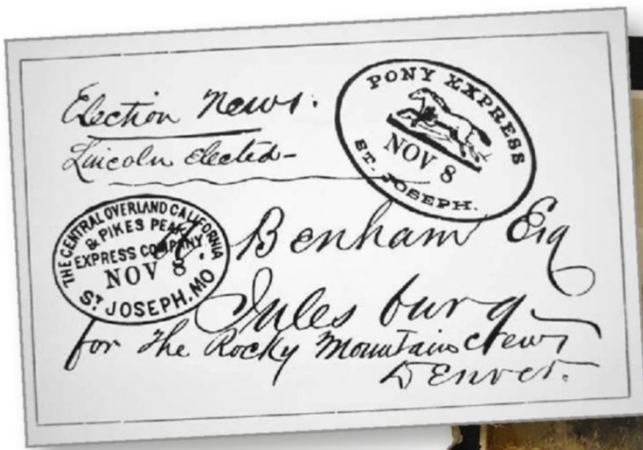 Election News.
Lincoln elected-
PONY EXPRESS
NOV 8
ST. JOSEPH.
THE CENTRAL OVERLAND CALIFORNIA
& PIKES PEAK
EXPRESS COMPANY.
NOV 8.
ST JOSEPH, MO
Benham Esq
Julesburg
for The Rocky Mountain News
Denver.